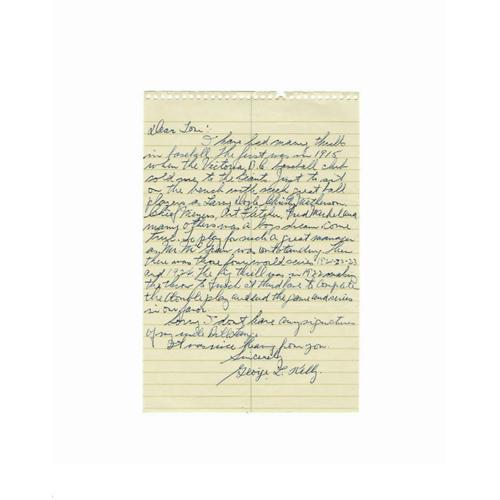 Dear Tom:
I have had many thrills
in baseball. The first was in 1915
when the Victoria B.C. baseball club
sold me to the Giants. Just to sit
on the bench with such great ball
players as Larry Doyle, Christy Mathewson
Chief Meyers, Art Fletcher, Fred Merkle and
many others was a boys dream come
true. To play for such a great manager
as Mr. McGraw was outstanding. Then
there was those four world series 1921-22-23
and 1924. The big thrill was in 1922 making
the throw to Frisch at third base to complete
the double play and end the game and series
in our favor.
Sorry I don't have any signatures
of my uncle Bill Lange.
It was nice hearing from you.
Sincerely
George L. Kelly.